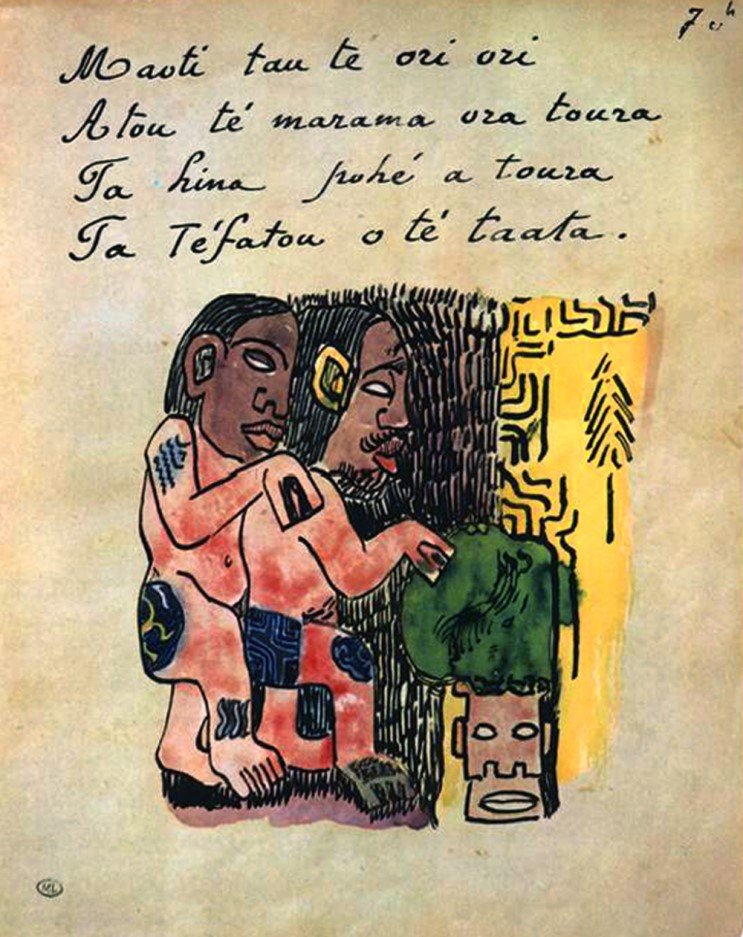 7
Maoti tau te ori ori
Atou té marama ora toura
Ta hina pohé a toura
Ta Téfatou o té taata.
ML